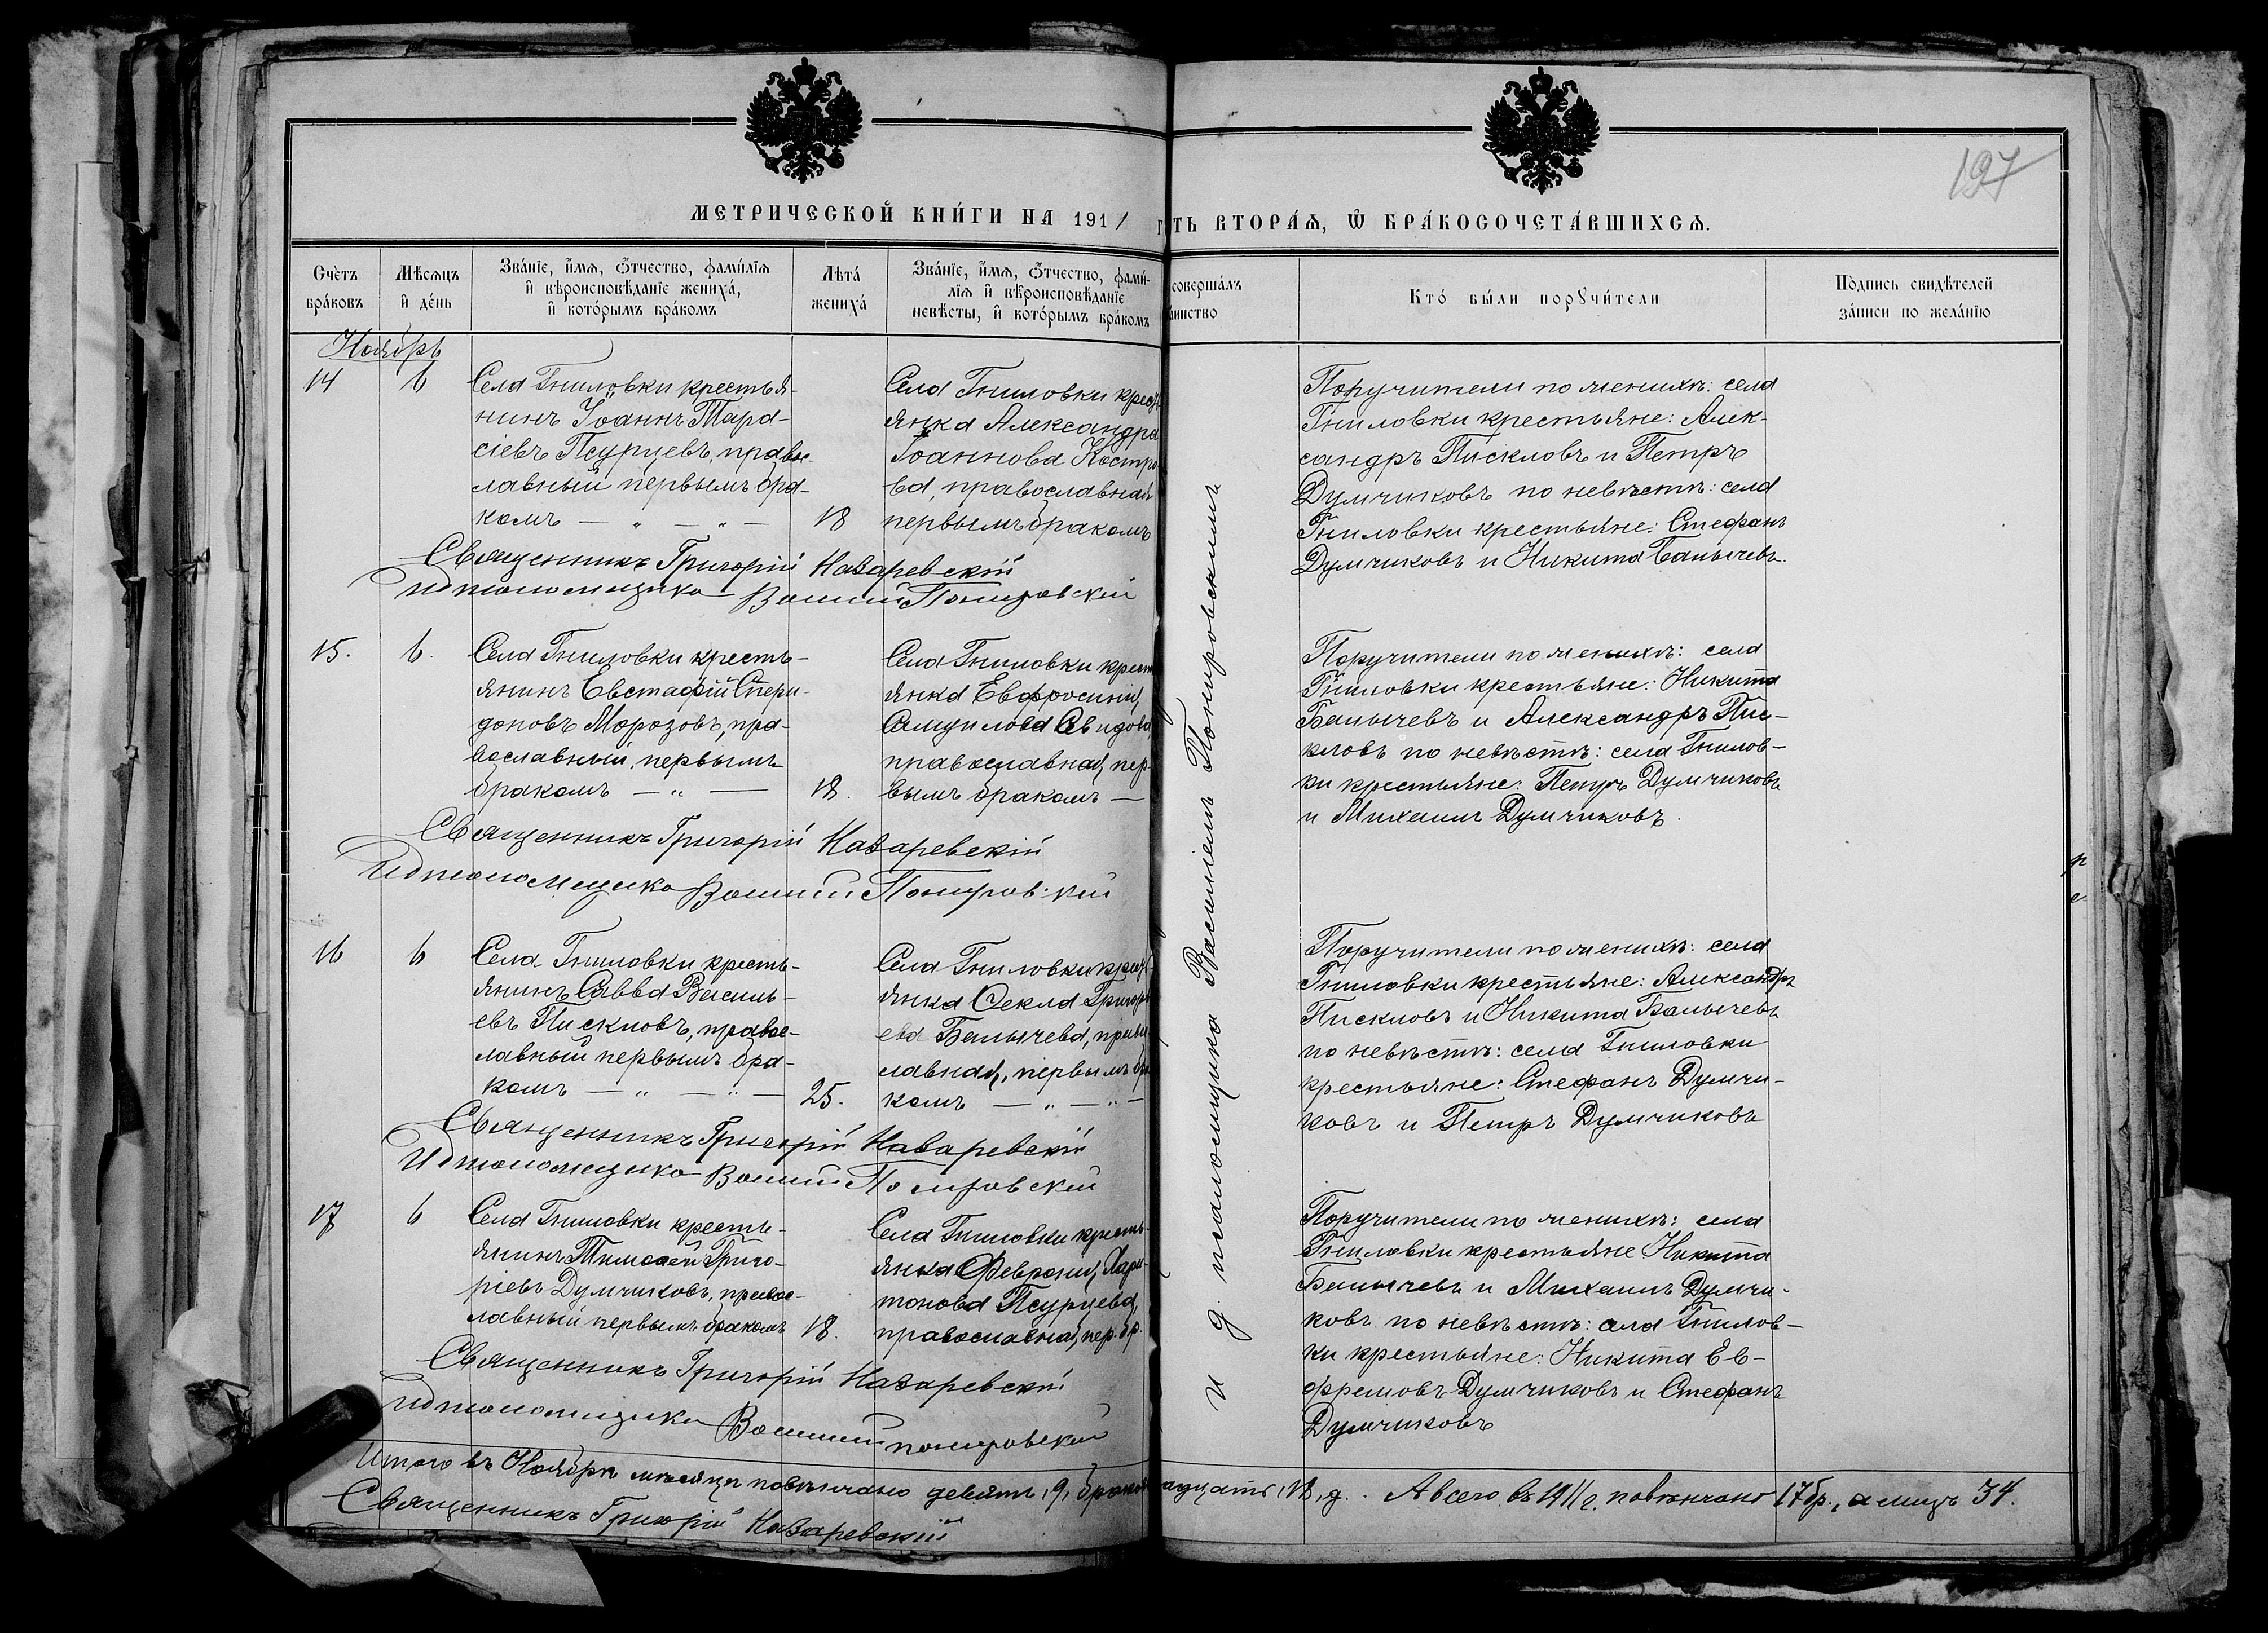 МЕТРИЧЕСКОЙ КНИ́ГИ НА 1911
ТЬ ВТОРА́Ѧ, Ѿ БРА́КОСОЧЕТА́ВШИХСѦ.
197
Сче́тъ бра́ковъ
Мѣ́сѧцъ и҆ де́нь
Зва́нїе, и҆́мѧ, ѻ҆́тчество, фами́лїѧ
и҆ вѣроисповѣ́данїе жениха́,
и҆ кото́рымъ бра́комъ
Лѣта́ жениха́
Зва́нїе, и҆́мѧ, ѻ҆́тчество, фами́-
лїѧ и҆ вѣроисповѣ́данїе
невѣ́сты, и҆ кото́рымъ бра́комъ
соверша́лъ
аинство
Кто́ бы́ли порꙋчи́тели
По́дпись свидѣ́телей
за́писи по жела́нїю
Ноябрь
14
6
Села Гниловки крестья-
нинъ Іоаннъ Тара-
сіевъ Псурцевъ, правос-
лавный первымъ бра-
комъ — „ — „ —
18
Села Гниловки крест
янка Александра
Іоаннова Костро
ва, православная
первымъ бракомъ
Поручители по женихѣ: села
Гниловки крестьяне: Алек-
сандръ Пискловъ и Петръ
Думчиковъ по невѣстѣ: села
Гниловки крестьяне: Стефанъ
Думчиковъ и Никита Балычевъ.
Священникъ Григорій Назаревскій
И д псаломщика Василій Понировскій
15.
6.
Села Гниловки кресть-
янинъ Евстафій Спери-
доновъ Морозовъ, пра-
вославный, первымъ
бракомъ — „ —
18.
Села Гниловки крест
янка Евфросинія
Самуилова Свидова,
православная, пер-
вымъ бракомъ —
Поручители по женихѣ: села
Гниловки крестьяне: Никита
Балычевъ и Александръ Пис-
кловъ по невѣстѣ: села Гнилов-
ки крестьяне: Петръ Думчиковъ
и Михаилъ Думчиковъ.
Священникъ Григорій Назаревскій
И д псаломщика Василій Понировскій
16
6
Села Гниловки кресть-
янинъ Савва Василь-
евъ Пискловъ, правос-
лавный первымъ бра-
комъ — „ — „ —
25.
Села Гниловки крест-
янка Ѳекла Григорь
ева Балычева, правос
лавная, первымъ бра
комъ — „ — „ —
Поручители по женихѣ: села
Гниловки крестьяне: Александръ
Пискловъ и Никита Балычевъ
по невѣстѣ: села Гниловки
крестьяне: Стефанъ Думчи-
ковъ и Петръ Думчиковъ
Священникъ Григорій Назаревскій
И д псаломщика Василій Понировскій
17
6
Села Гниловки кресть-
янинъ Тимоѳей Григо-
ріевъ Думчиковъ, правос-
лавный первымъ бракомъ
18.
Села Гниловки кресть-
янка Феврония Хари-
тонова Псурцева,
православная, пер. бр.
Поручители по женихѣ: села
Гниловки крестьяне Никита
Балычевъ и Михаилъ Думчи-
ковъ по невѣстѣ: села Гнилов-
ки крестьяне: Никита Ев-
фремовъ Думчиковъ и Стефанъ
Думчиковъ
Священникъ Григорій Назаревскій
И д псаломщика Василій Понировскій
и д. псаломщика Василіемъ Понировскимъ
Итого въ Ноябрѣ мѣсяцѣ повѣнчано девять, 9, браковъ
адцать, 18, д. А всего въ 1911 г. повѣнчано 17 бр., а лицъ 34.
Священникъ Григорій Назаревскій